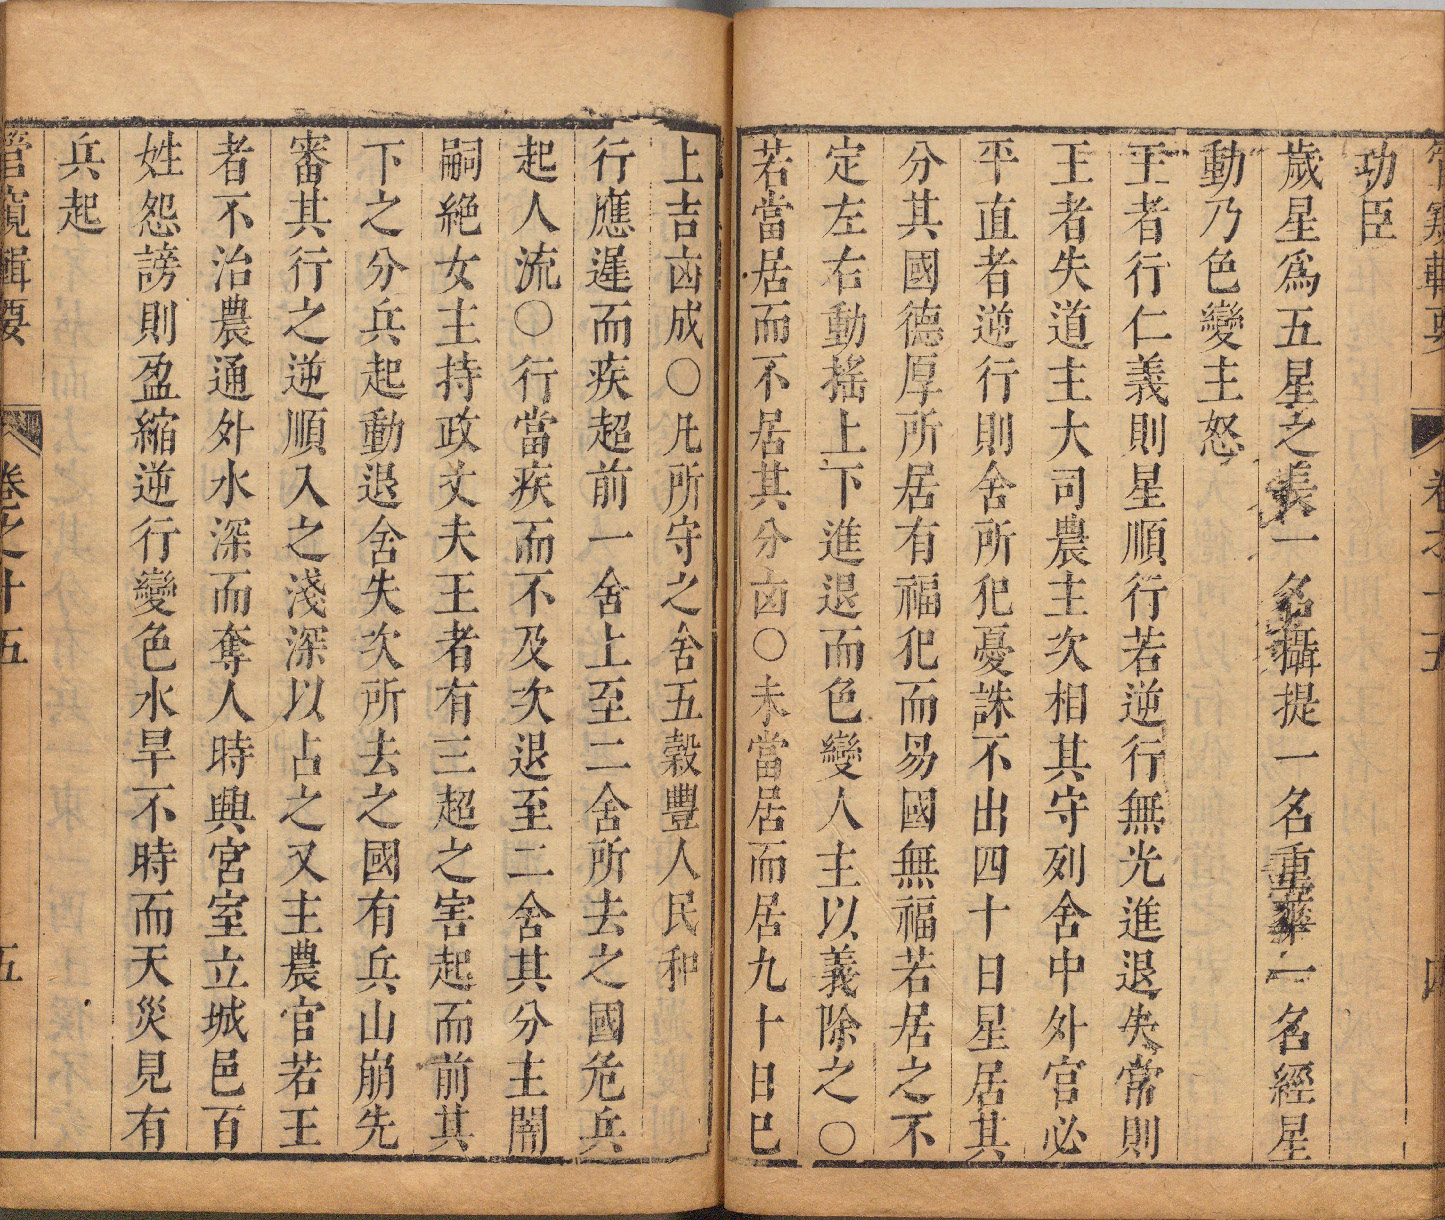 管窺輯要　卷之十五　四
功臣
歲星爲五星之長一名攝提一名重華一名經星
動乃色變主怒
王者行仁義則星順行若逆行無光進退失常則
王者失道主大司農主次相其守列舍中外官必
平直者逆行則舍所犯憂誅不出四十日星居其
分其國德厚所居有福犯而易國無福若居之不
定左右動搖上下進退而色變人主以義除之〇
若當居而不居其分凶〇未當居而居九十日已
上吉凶成〇凡所守之舍五穀豐人民和
行應遲而疾超前一舍上至二舍所去之國危兵
起人流〇行當疾而不及次退至二舍其分主闇
嗣絶女主持政丈夫王者有三超之害起而前其
下之分兵起動退舍失次所去之國有兵山崩先
審其行之逆順入之淺深以占之又主農官若王
者不治農通外水深而奪人時興宮室立城邑百
姓怨謗則盈縮逆行變色水旱不時而天災見有
兵起
管窺輯要　卷之十五　五